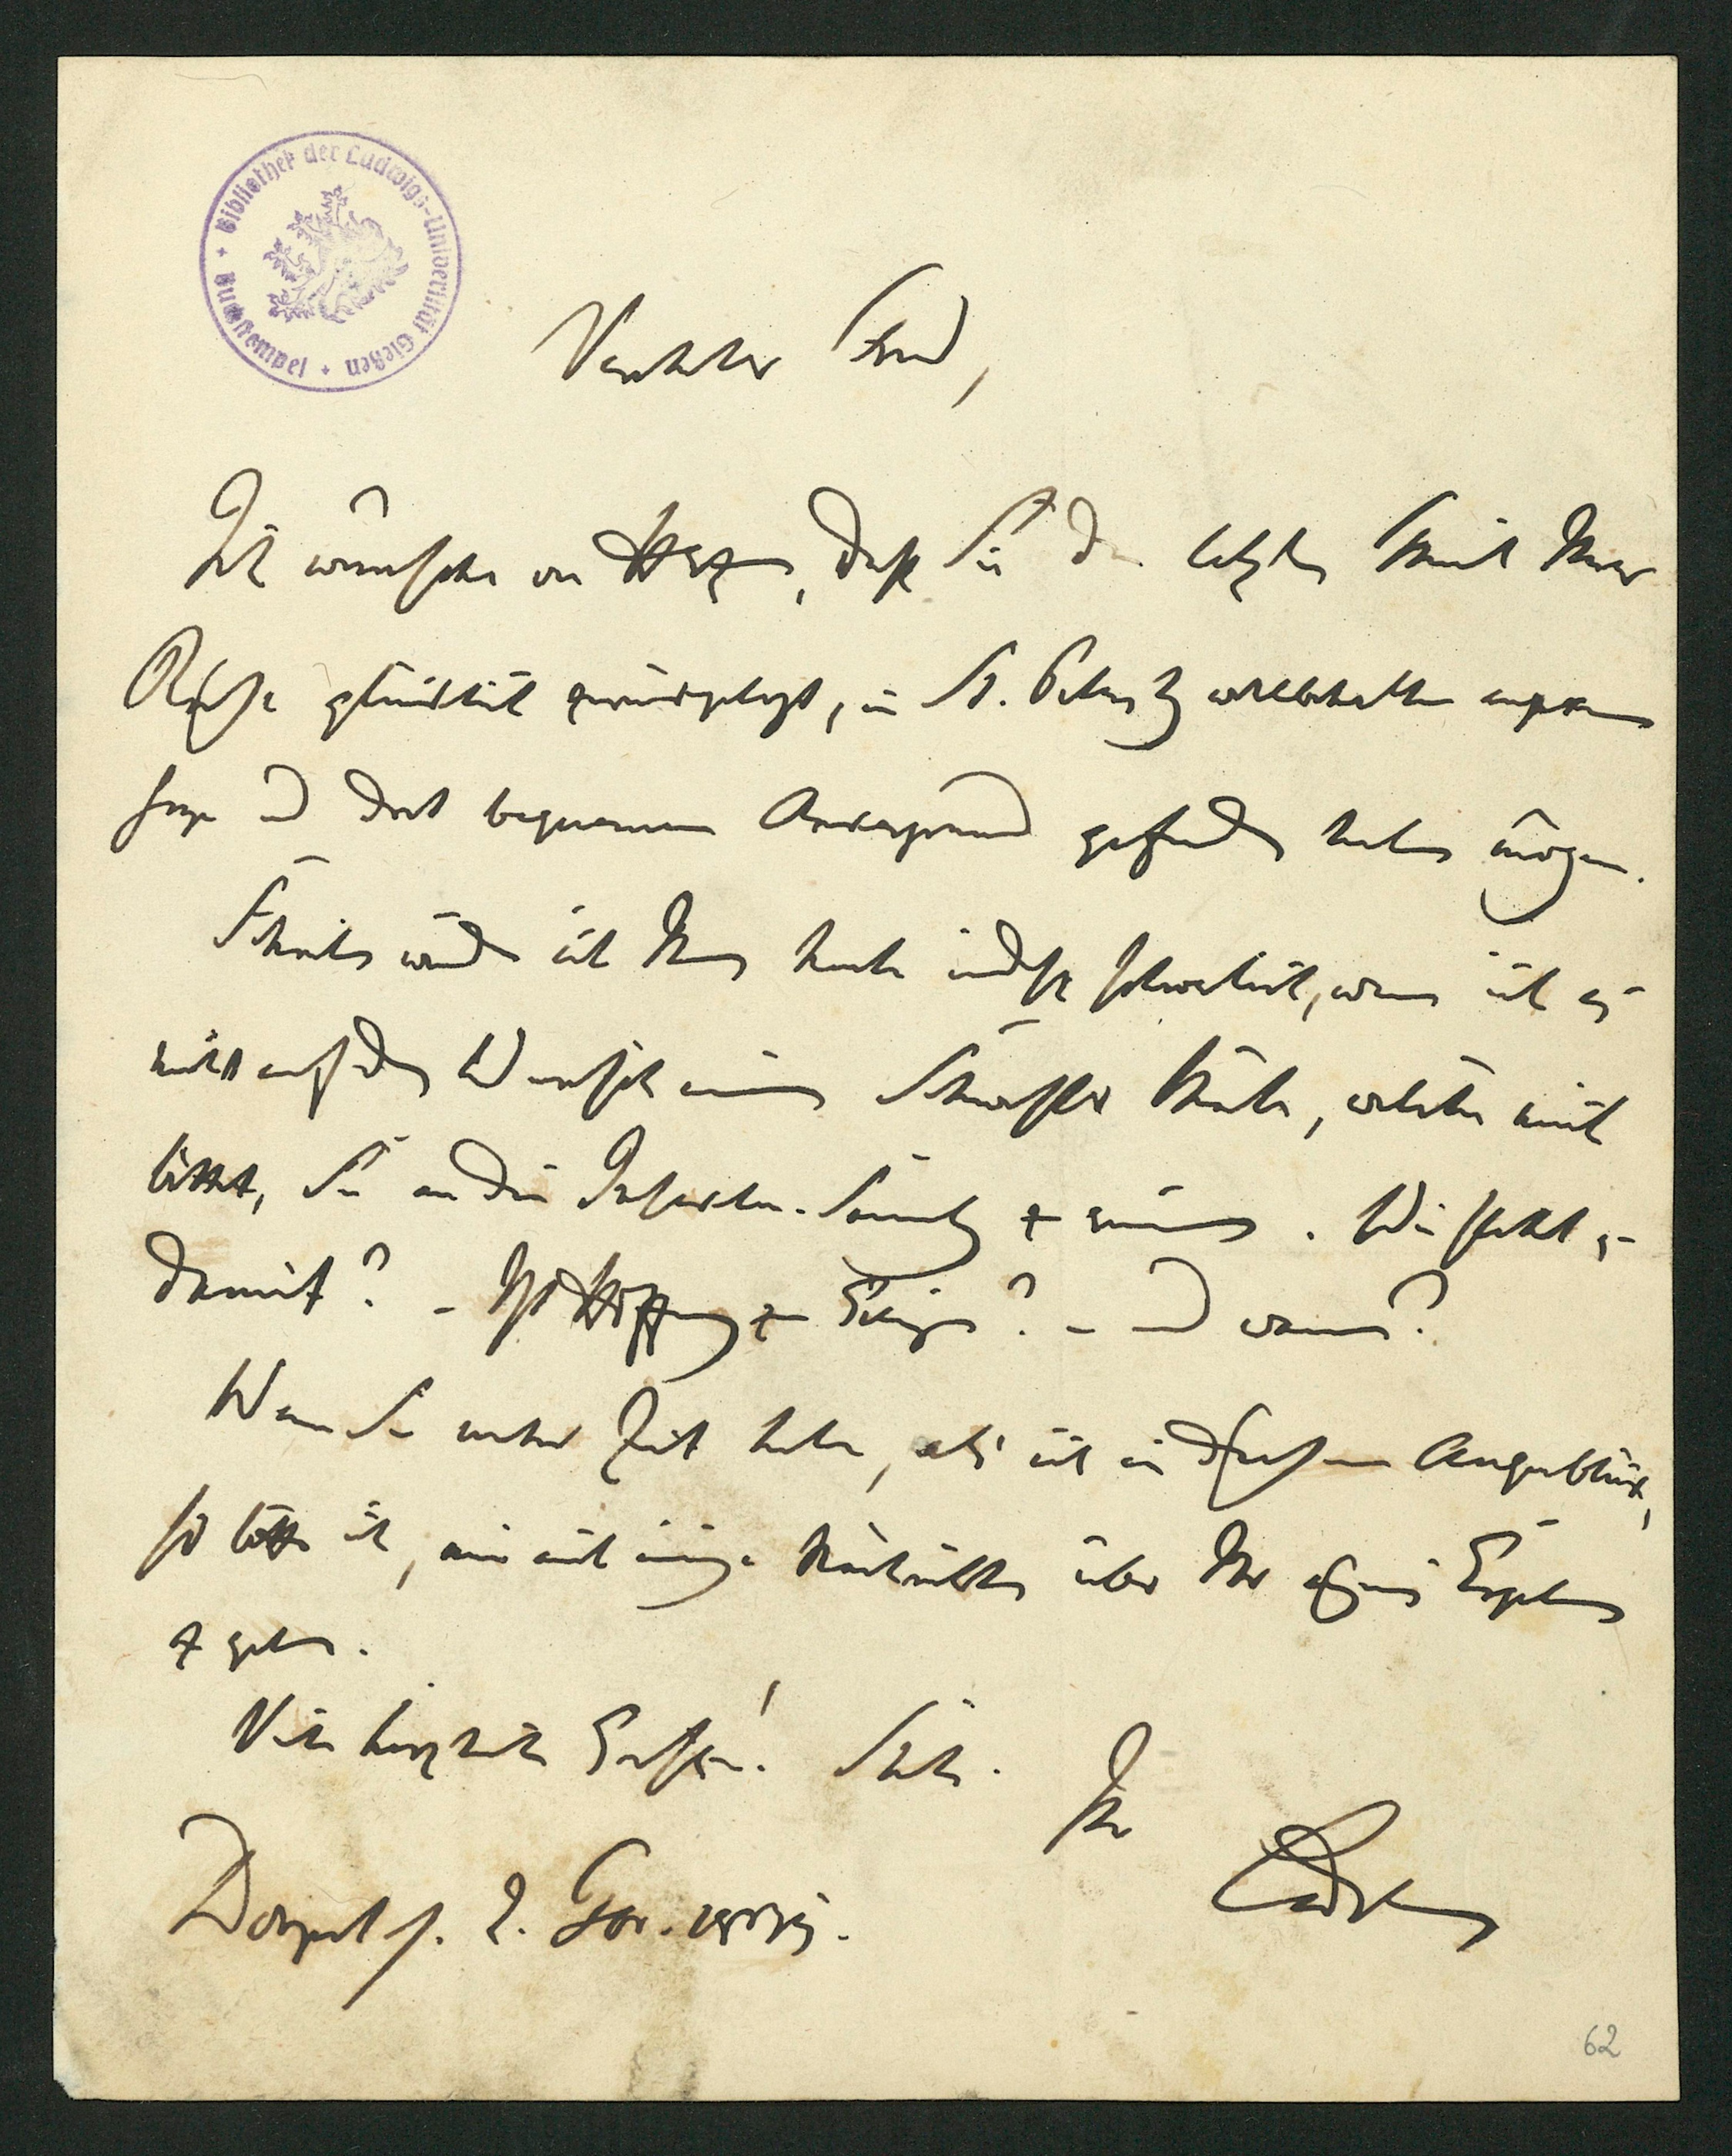 Bibliothek der Ludwigs-Universität Gießen + Buchstempel +
Verehrter Freund,
Ich wünsche von Herzen, daß Sie den letzten Theil Ihrer
Reise glücklich zurückgelegt, in St. Petersbg wohlbehalten angekom
und dort bequemes gefunden haben mögen.
Schreiben würde ich Ihnen heute indeß schwerlich, wenn ich es
nicht auf den Wunsch meiner Schwester thäte, welche mich
bittet, Sie an die Sammlg zu erinnern. Wie steht es
damit? – Ist Hoffnung zum ? – und wann?
Wenn Sie mehr Zeit haben, als ich in diesem Augenblick,
so bitte ich, mir auch einige Nachrichten über Ihr Ergehen
zu geben.
Viele herzliche Grüße! Stets.
Ihr
Dorpat
62